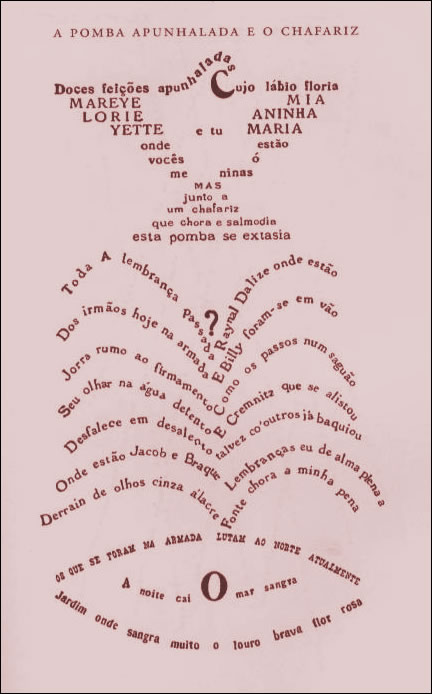 A POMBA APUNHALADA E O CHAFARIZ
Doces feições apunhaladas Cujo lábio floria
MAREYE MIA
LORIE ANINHA
YETTE e tu MARIA
onde estão
vocês ó
me ninas
MAS
junto a
um chafariz
que chora e salmodia
esta pomba se extasia
Toda A lembrança Passada
?
Raynal Dalize onde estão
Dos irmãos hoje na armada
E Billy foram-se em vão
Jorra rumo ao firmamento
Como os passos num saguão
Seu olhar na água detento
E Cremnitz que se alistou
Desfalece em desalento
talvez co'outros já baquiou
Onde estão Jacob e Braque
Lembranças eu de alma plena a
Derrain de olhos cinza álacre
Fonte chora a minha pena
OS QUE SE FORAM NA ARMADA LUTAM AO NORTE ATUALMENTE
A noite cai O mar sangra
Jardim onde sangra muito o louro brava flor rosa